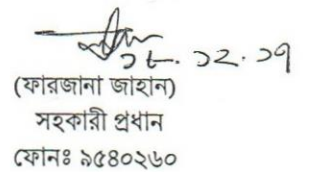 ১৮.১২.১৭
(ফারজানা জাহান)
সহকারী প্রধান
ফোনঃ ৯৫৪০২৬০